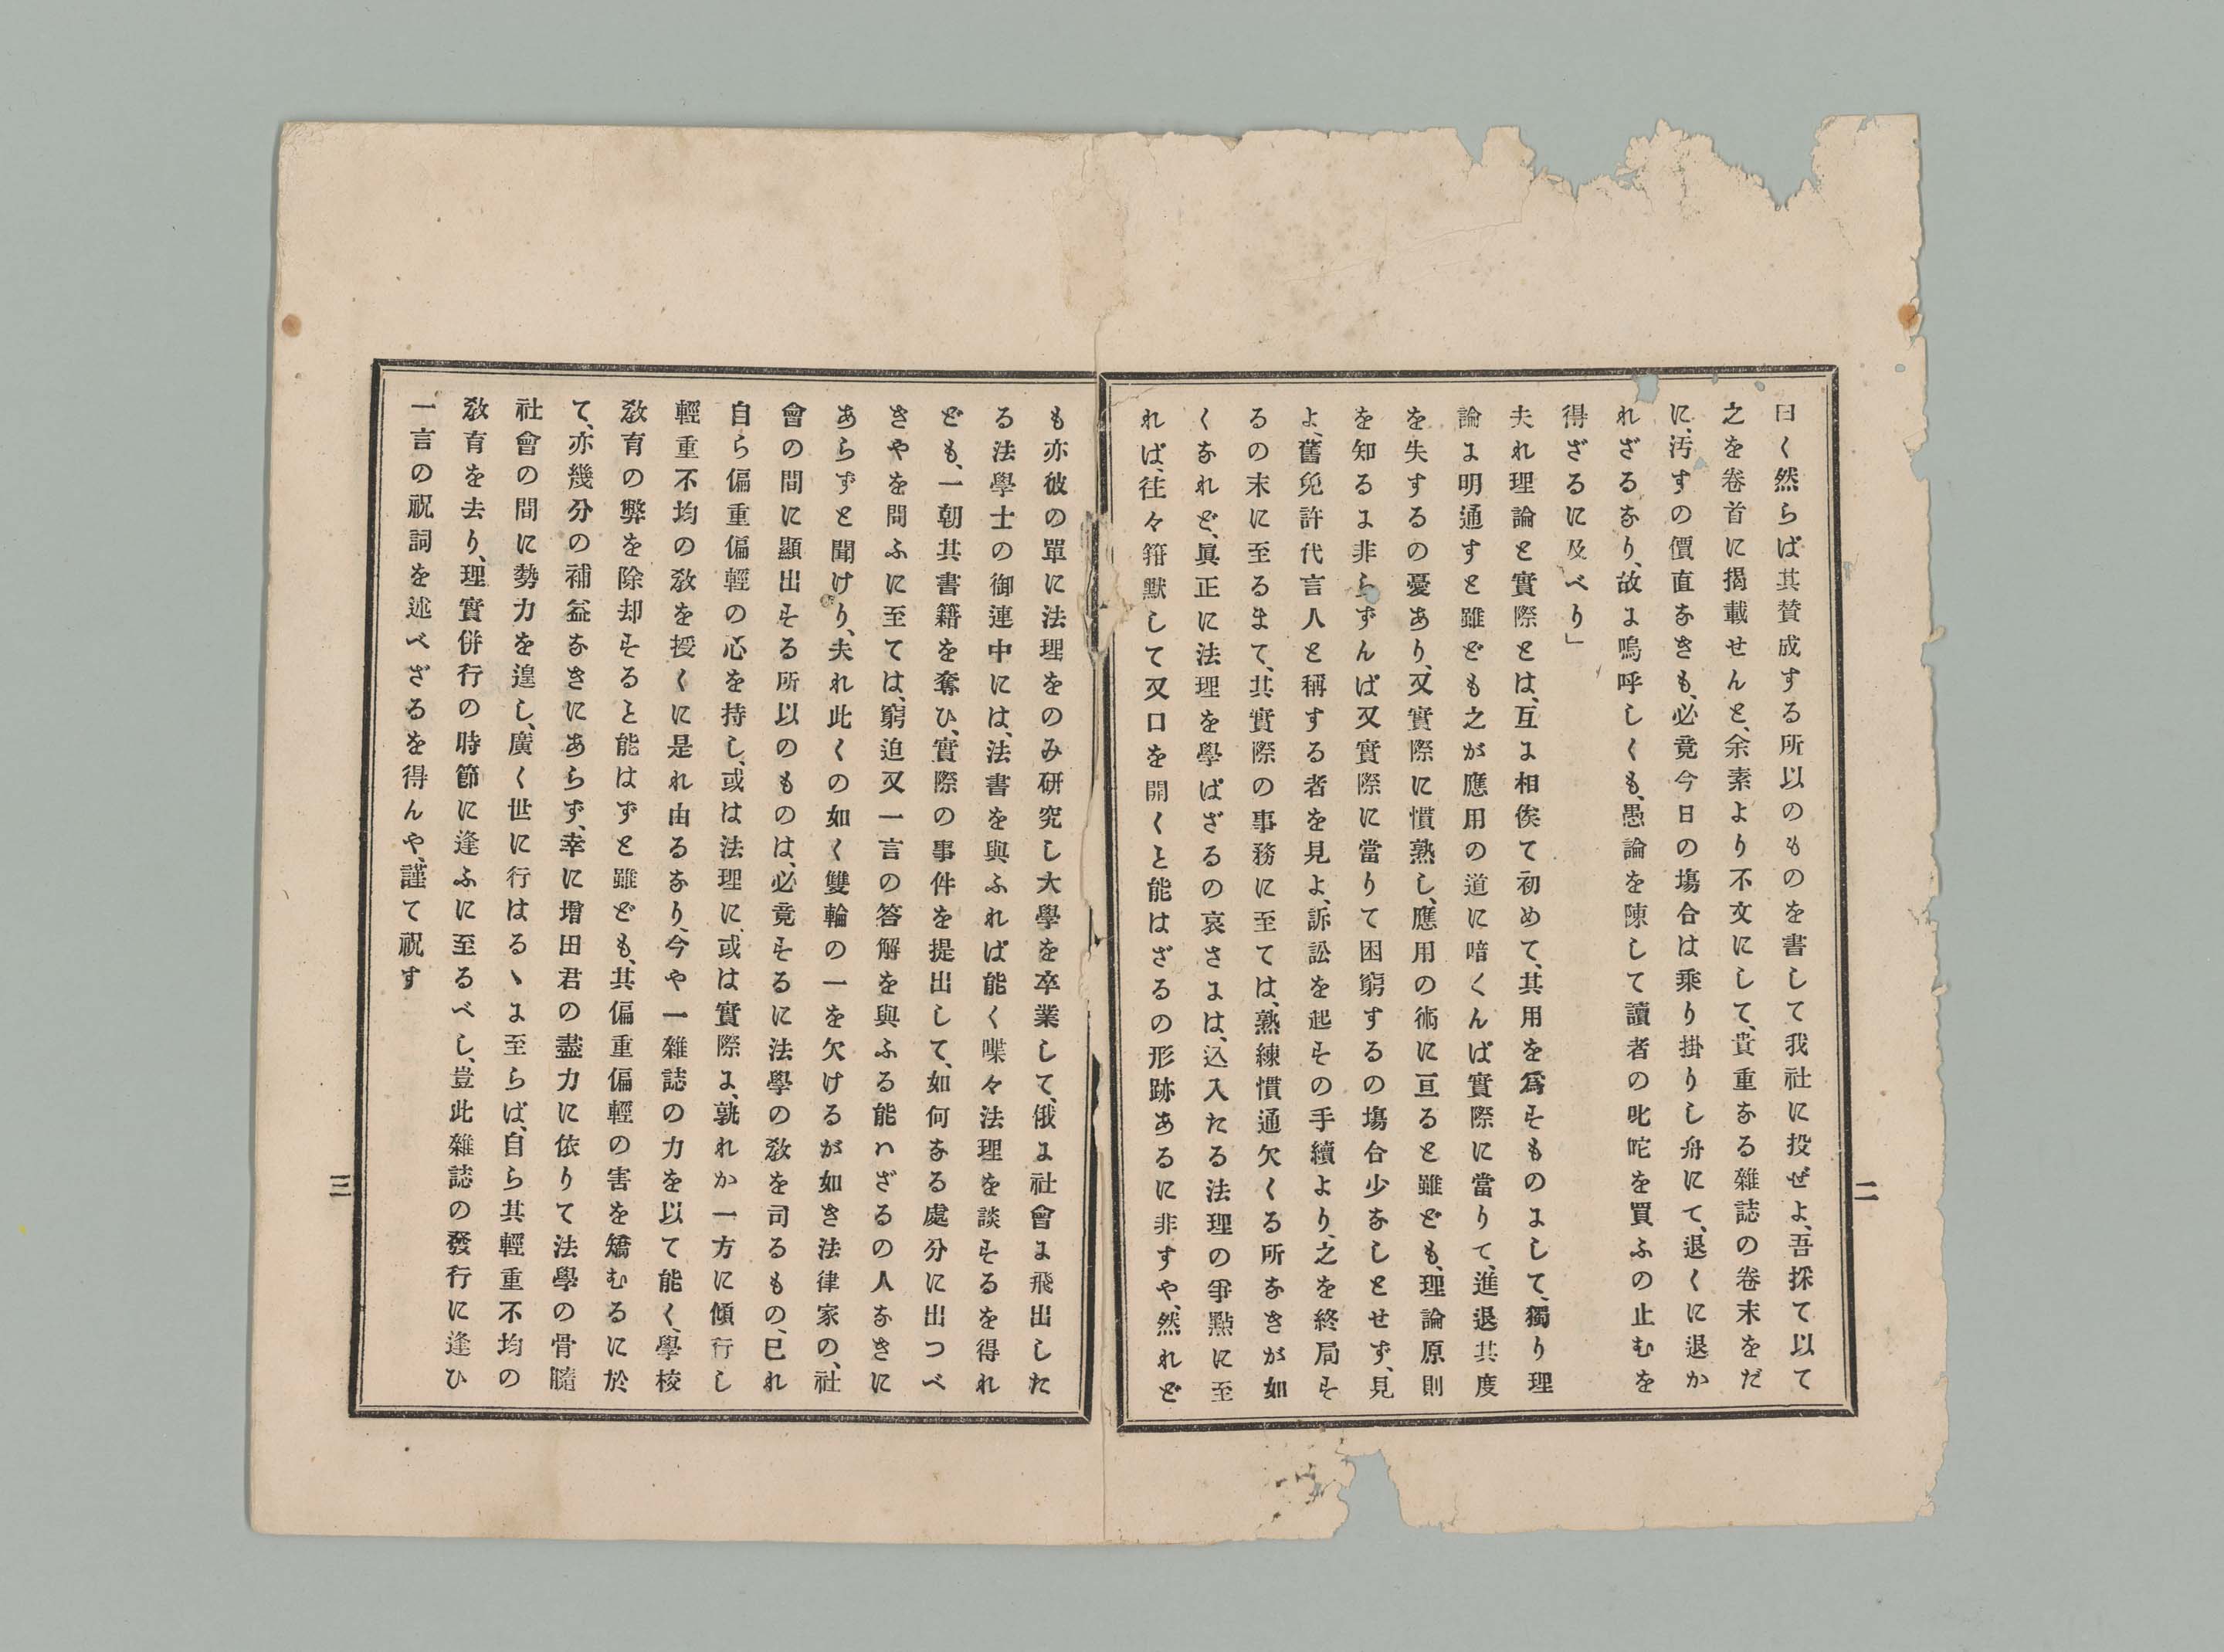 二
曰く然らば其賛成する所以のものを書して我社に投ぜよ、吾採て以て
之を卷首に揭載せんと、余素より不文にして、貴重なる雜誌の卷末をだ
に、汚すの價直なきも、必竟今日の塲合は乘り掛りし舟にて、退くに退か
れざるなり、故に嗚呼しくも、愚論を陳して讀者の叱咤を買ふの止むを
得ざるに及べり」
夫れ理論と實際とは、互に相俟て初めて、其用を爲すものにして、獨り理
論に明通すと雖ども之が應用の道に暗くんば實際に當りて、進退其度
を失するの憂あり、又實際に慣熟し、應用の術に亘ると雖ども、理論原則
を知るに非らずんば又實際に當りて困窮するの塲合少なしとせず、見
よ、舊免許代言人と稱する者を見よ、訴訟を起すの手續より、之を終局す
るの末に至るまて、其實際の事務に至ては、熟練慣通欠くる所なきが如
くなれど、眞正に法理を學ばざるの哀さには、込入たる法理の爭點に至
れば、往々箝默して又口を開くと能はざるの形跡あるに非すや、然れど
も亦彼の單に法理をのみ研究し大學を卒業して、俄に社會に飛出した
る法學士の御連中には、法書を與ふれば能く喋々法理を談するを得れ
ども、一朝其書籍を奪ひ、實際の事件を提出して、如何なる處分に出つべ
きやを問ふに至ては、窮迫又一言の答解を與ふる能ハざるの人なきに
あらずと聞けり、夫れ此くの如く雙輪の一を欠けるが如き法律家の、社
會の間に顯出する所以のものは、必竟するに法學の敎を司るもの、已れ
自ら偏重偏輕の心を持し、或は法理に、或は實際に、孰れか一方に傾行し
輕重不均の敎を授くに是れ由るなり、今や一雜誌の力を以て能く、學校
敎育の弊を除却すると能はずと雖ども、其偏重偏輕の害を矯むるに於
て、亦幾分の補益なきにあらず、幸に增田君の盡力に依りて法學の骨髓
社會の間に勢力を遑し、廣く世に行はるヽに至らば、自ら其輕重不均の
敎育を去り、理實併行の時節に逢ふに至るべし、豈此雜誌の發行に逢ひ
一言の祝詞を述べざるを得んや、謹て祝す
三